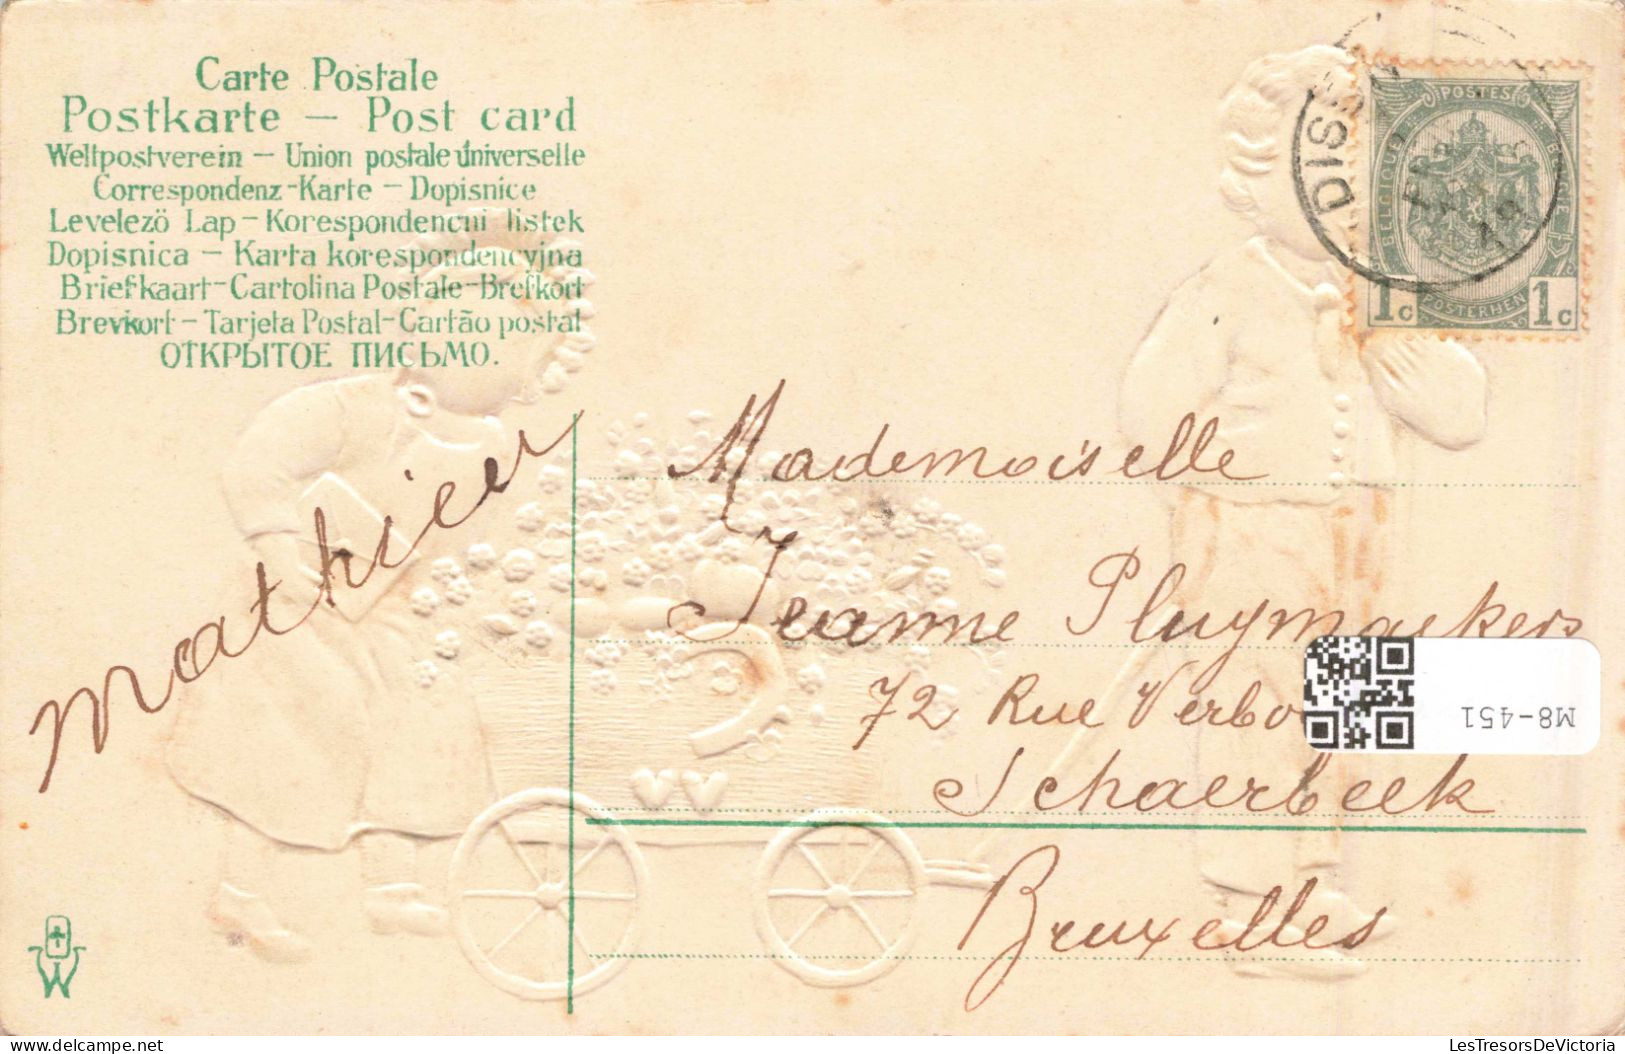 Carte Postale
Postkarte — Post card
Weltpostverein — Union postale universelle
Correspondenz-Karte — Dopisnice
Levelezö Lap — Korespondencni listek
Dopisnica — Karta korespondencyjna
Briefkaart-Cartolina Postale-Brefkort
Brevkort — Tarjeta Postal-Cartão postal
ОТКРЫТОЕ ПИСЬМО.
POSTES
BELGIQUE
BELGIE
1c POSTERIJEN 1c
DISON
Mathieu
Mademoiselle
Jeanne Pluymaekers
72 Rue
Schaerbeek
Bruxelles
M8-451
W
delcampe.net
LesTresorsDeVictoria